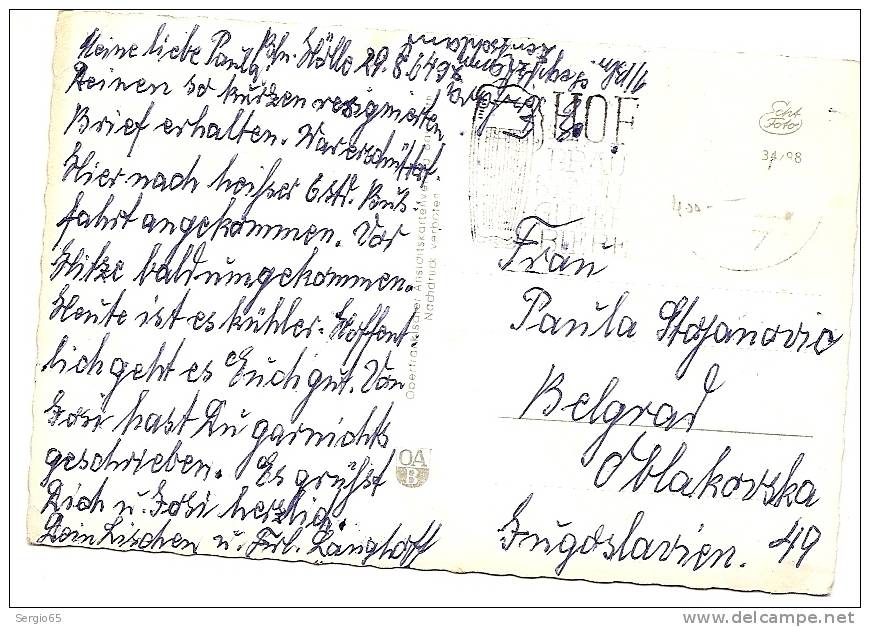 Bln. Hölle 29.8.64
Meine liebe Paula!
Deinen so kurzen resignierten
Brief erhalten. War erschüttert.
Hier nach heißer 6 Std. Bus-
fahrt angekommen. Vor
Hitze bald umgekommen.
Heute ist es kühler. Hoffent-
lich geht es Euch gut. Von
Josi hast Du garnichts
geschrieben. Es grüßt
Dich u. Josi herzlich
Dein Lischen u. Frl. Langhoff
Oberfränkischer Ansichtskartenverlag
Nachdruck verboten
OA
B
HOF
Echt
Foto
34/98
400-
7
Frau
Paula Stojanovic
Belgrad
Oblakovska
49
Jugoslavien.
Sergio65
www.delcampe.net